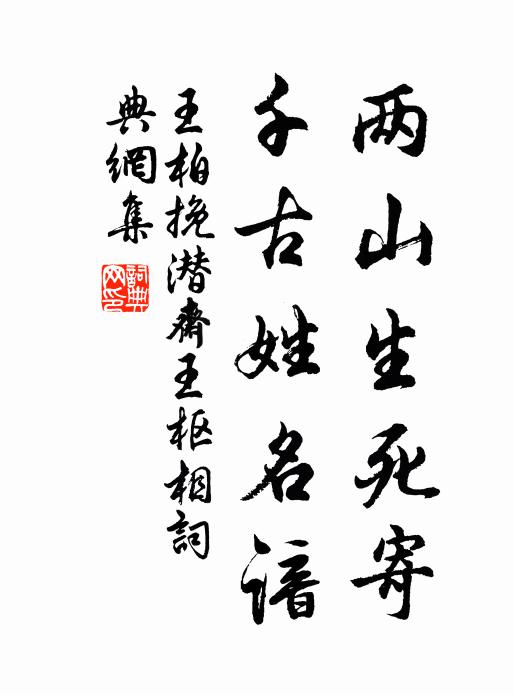 两山生死寄
千古姓名谙
王柏挽潜齋王枢相詞
典網集
詞典网印